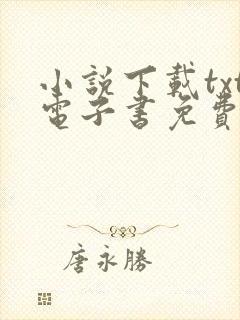 小說下載txt
電子書免費
唐永勝